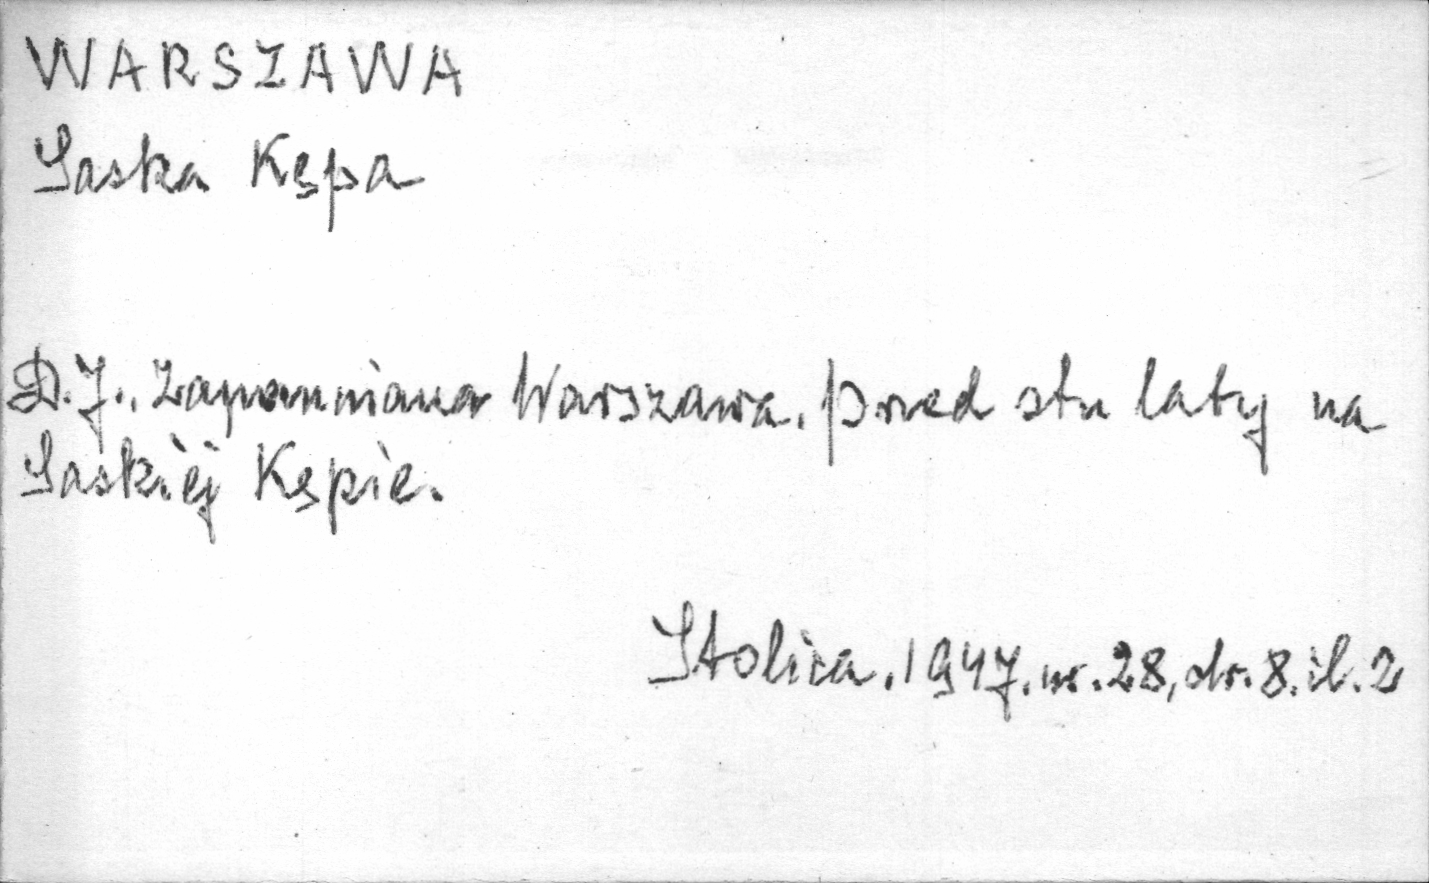 WARSZAWA
Saska Kępa
D.J., Zapomniana Warszawa. Przed stu laty na
Saskiej Kępie.
Stolica. 1947. nr. 28, str. 8. il. 2